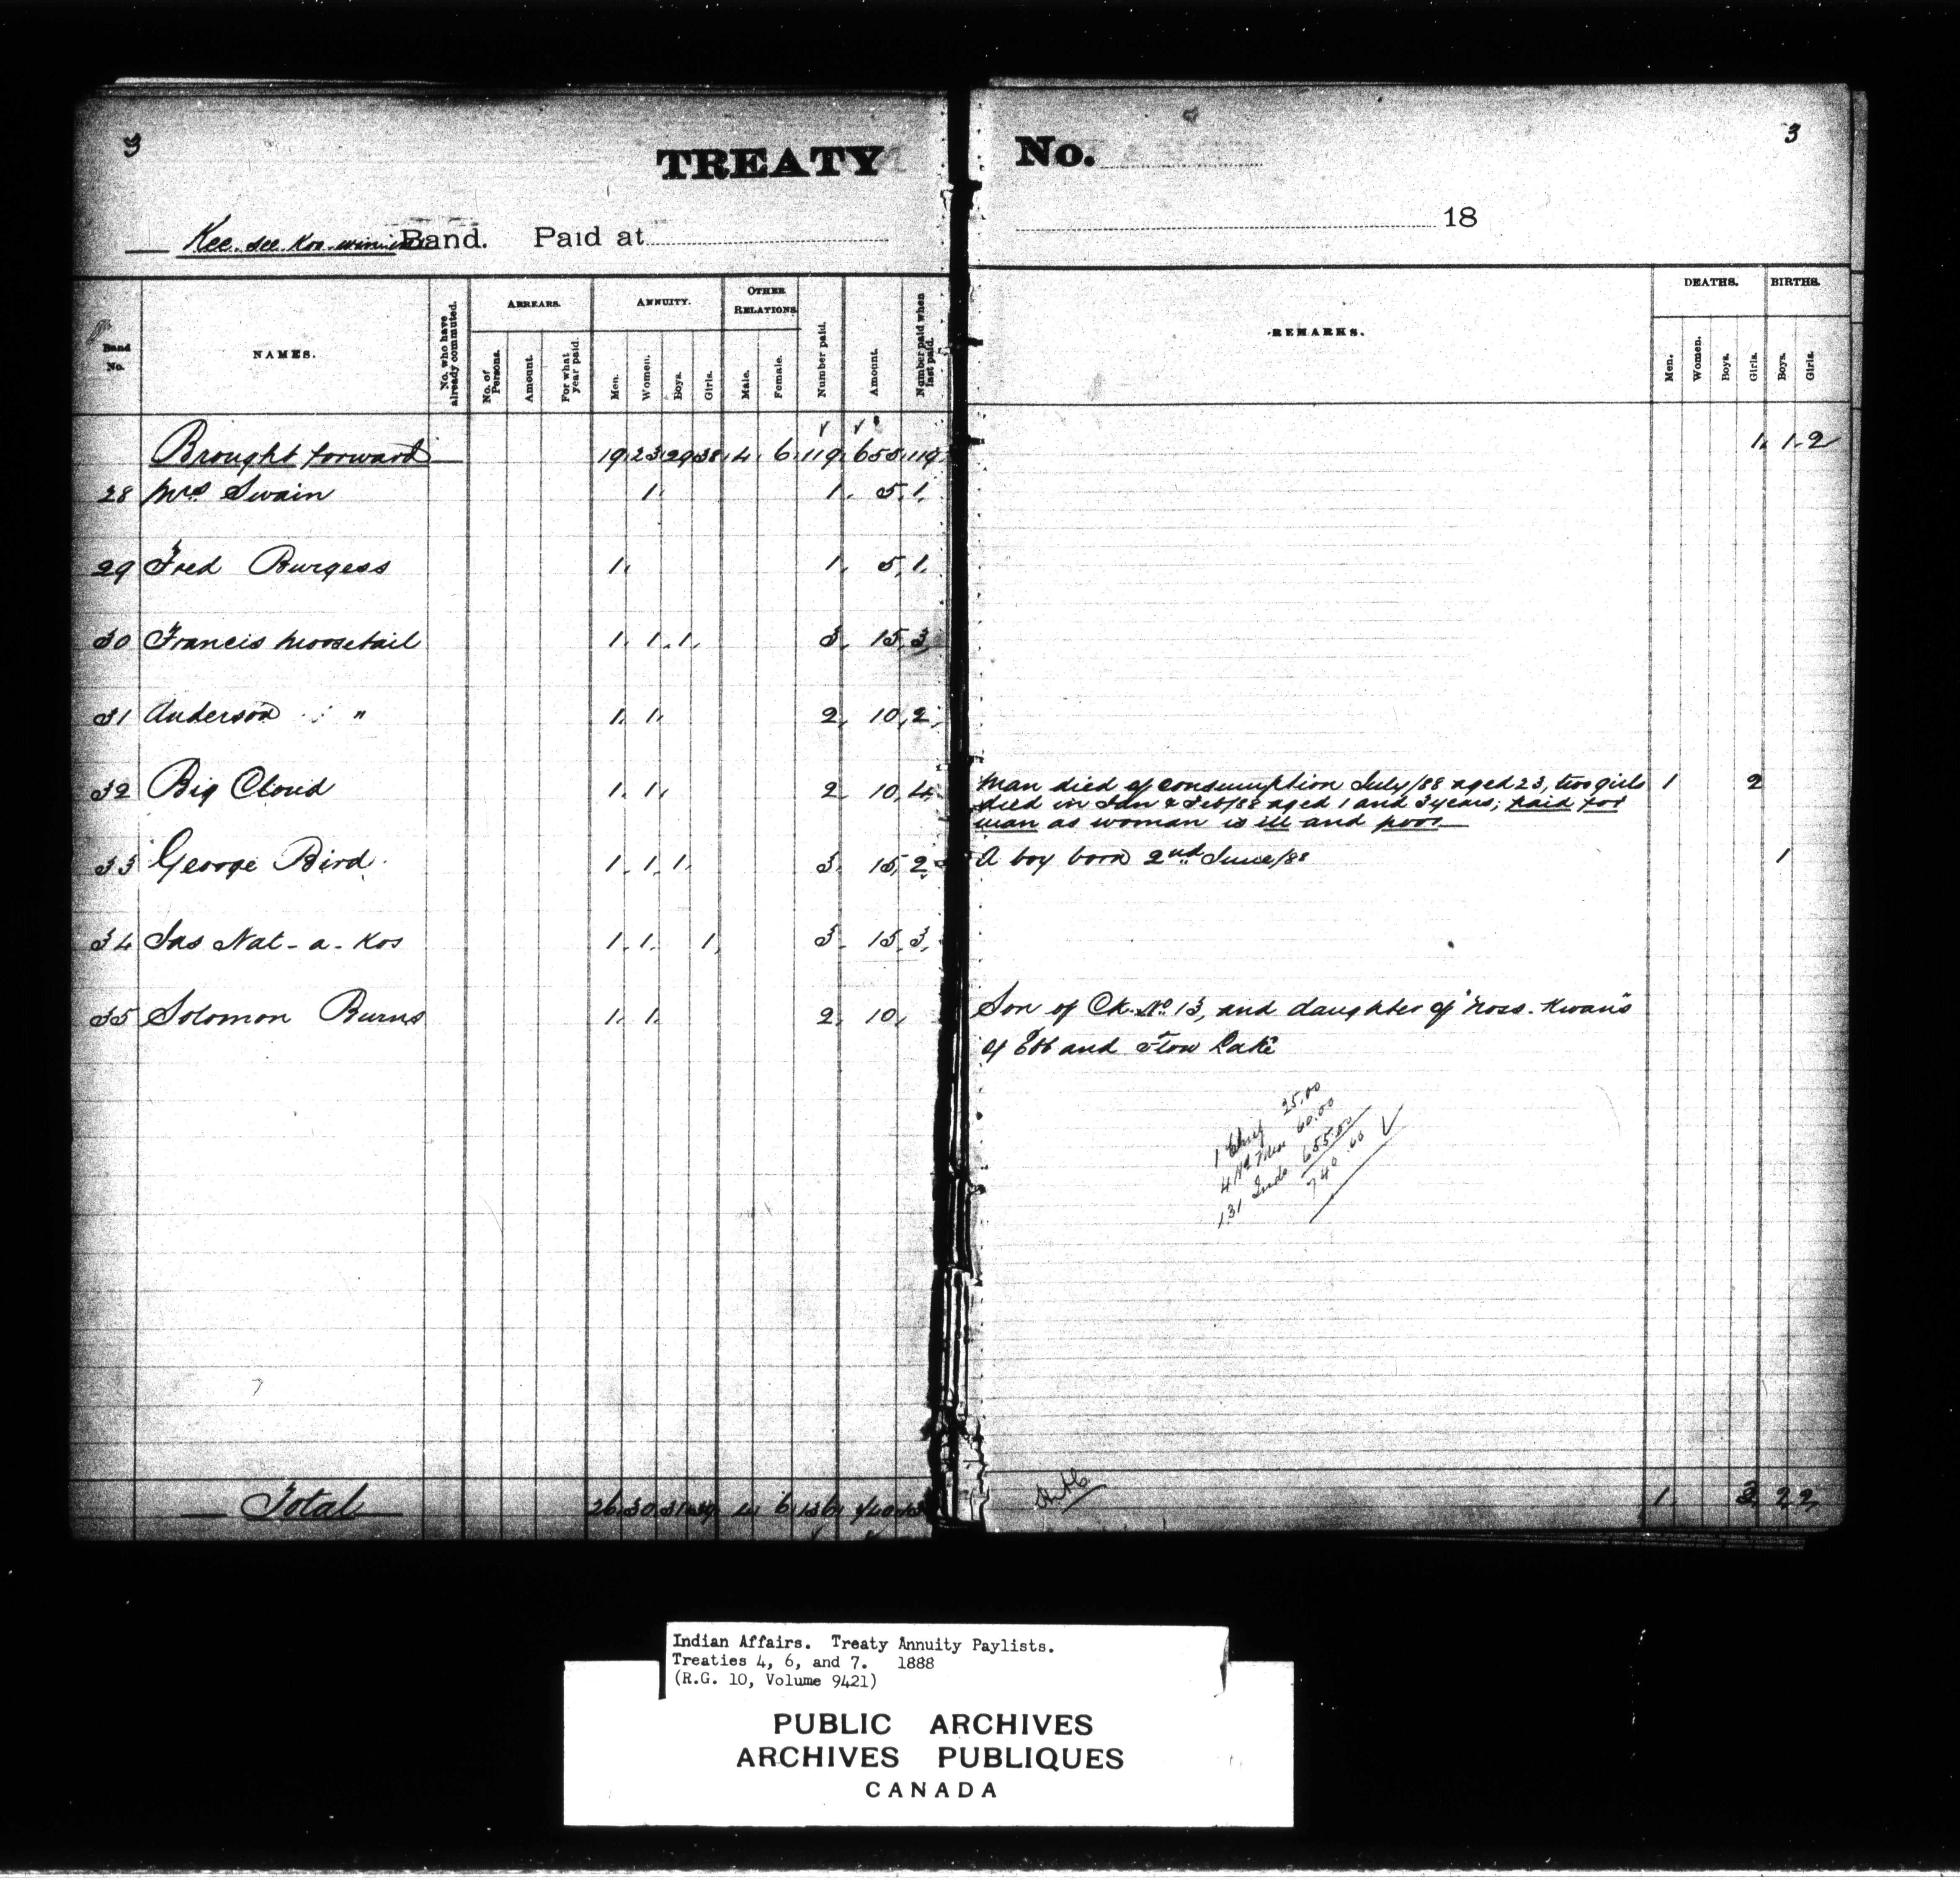 3
3
TREATY No.
Kee-see-Koo-winin Band. Paid at 18
Band No. NAMES. No. who have already commuted. ARREARS. No. of Persons. Amount. For what year paid. ANNUITY. Men. Women. Boys. Girls. OTHER RELATIONS. Male. Female. Number paid. Amount. Number paid when last paid. REMARKS. DEATHS. Men. Women. Boys. Girls. BIRTHS. Boys. Girls.
Brought forward 19 23 29 38 4 6 119 655 119 1 1 2
28 Mrs Swain 1 1 5 1
29 Fred Burgess 1 1 5 1
30 Francis Moosetail 1 1 1 3 15 3
31 Anderson " 1 1 2 10 2
32 Big Cloud 1 1 2 10 4 Man died of consumption July/88 aged 23, two girls 1 2
died in Jan & Feb/88 aged 1 and 3 years; paid for
man as woman is ill and poor
33 George Bird 1 1 1 3 15 2 A boy born 2nd June/88 1
34 Jas Nat-a-Kos 1 1 1 3 15 3
35 Solomon Burns 1 1 2 10 Son of Ck. No 13, and daughter of "Noss-Kwan's"
of Ebb and Flow Lake
1 Chief 25.00
4 Hd Men 60.00
131 Inds 655.00
740.00
Total 26 30 31 39 4 6 136 740 13 1 3 2 2
Indian Affairs. Treaty Annuity Paylists.
Treaties 4, 6, and 7. 1888
(R.G. 10, Volume 9421)
PUBLIC ARCHIVES
ARCHIVES PUBLIQUES
CANADA